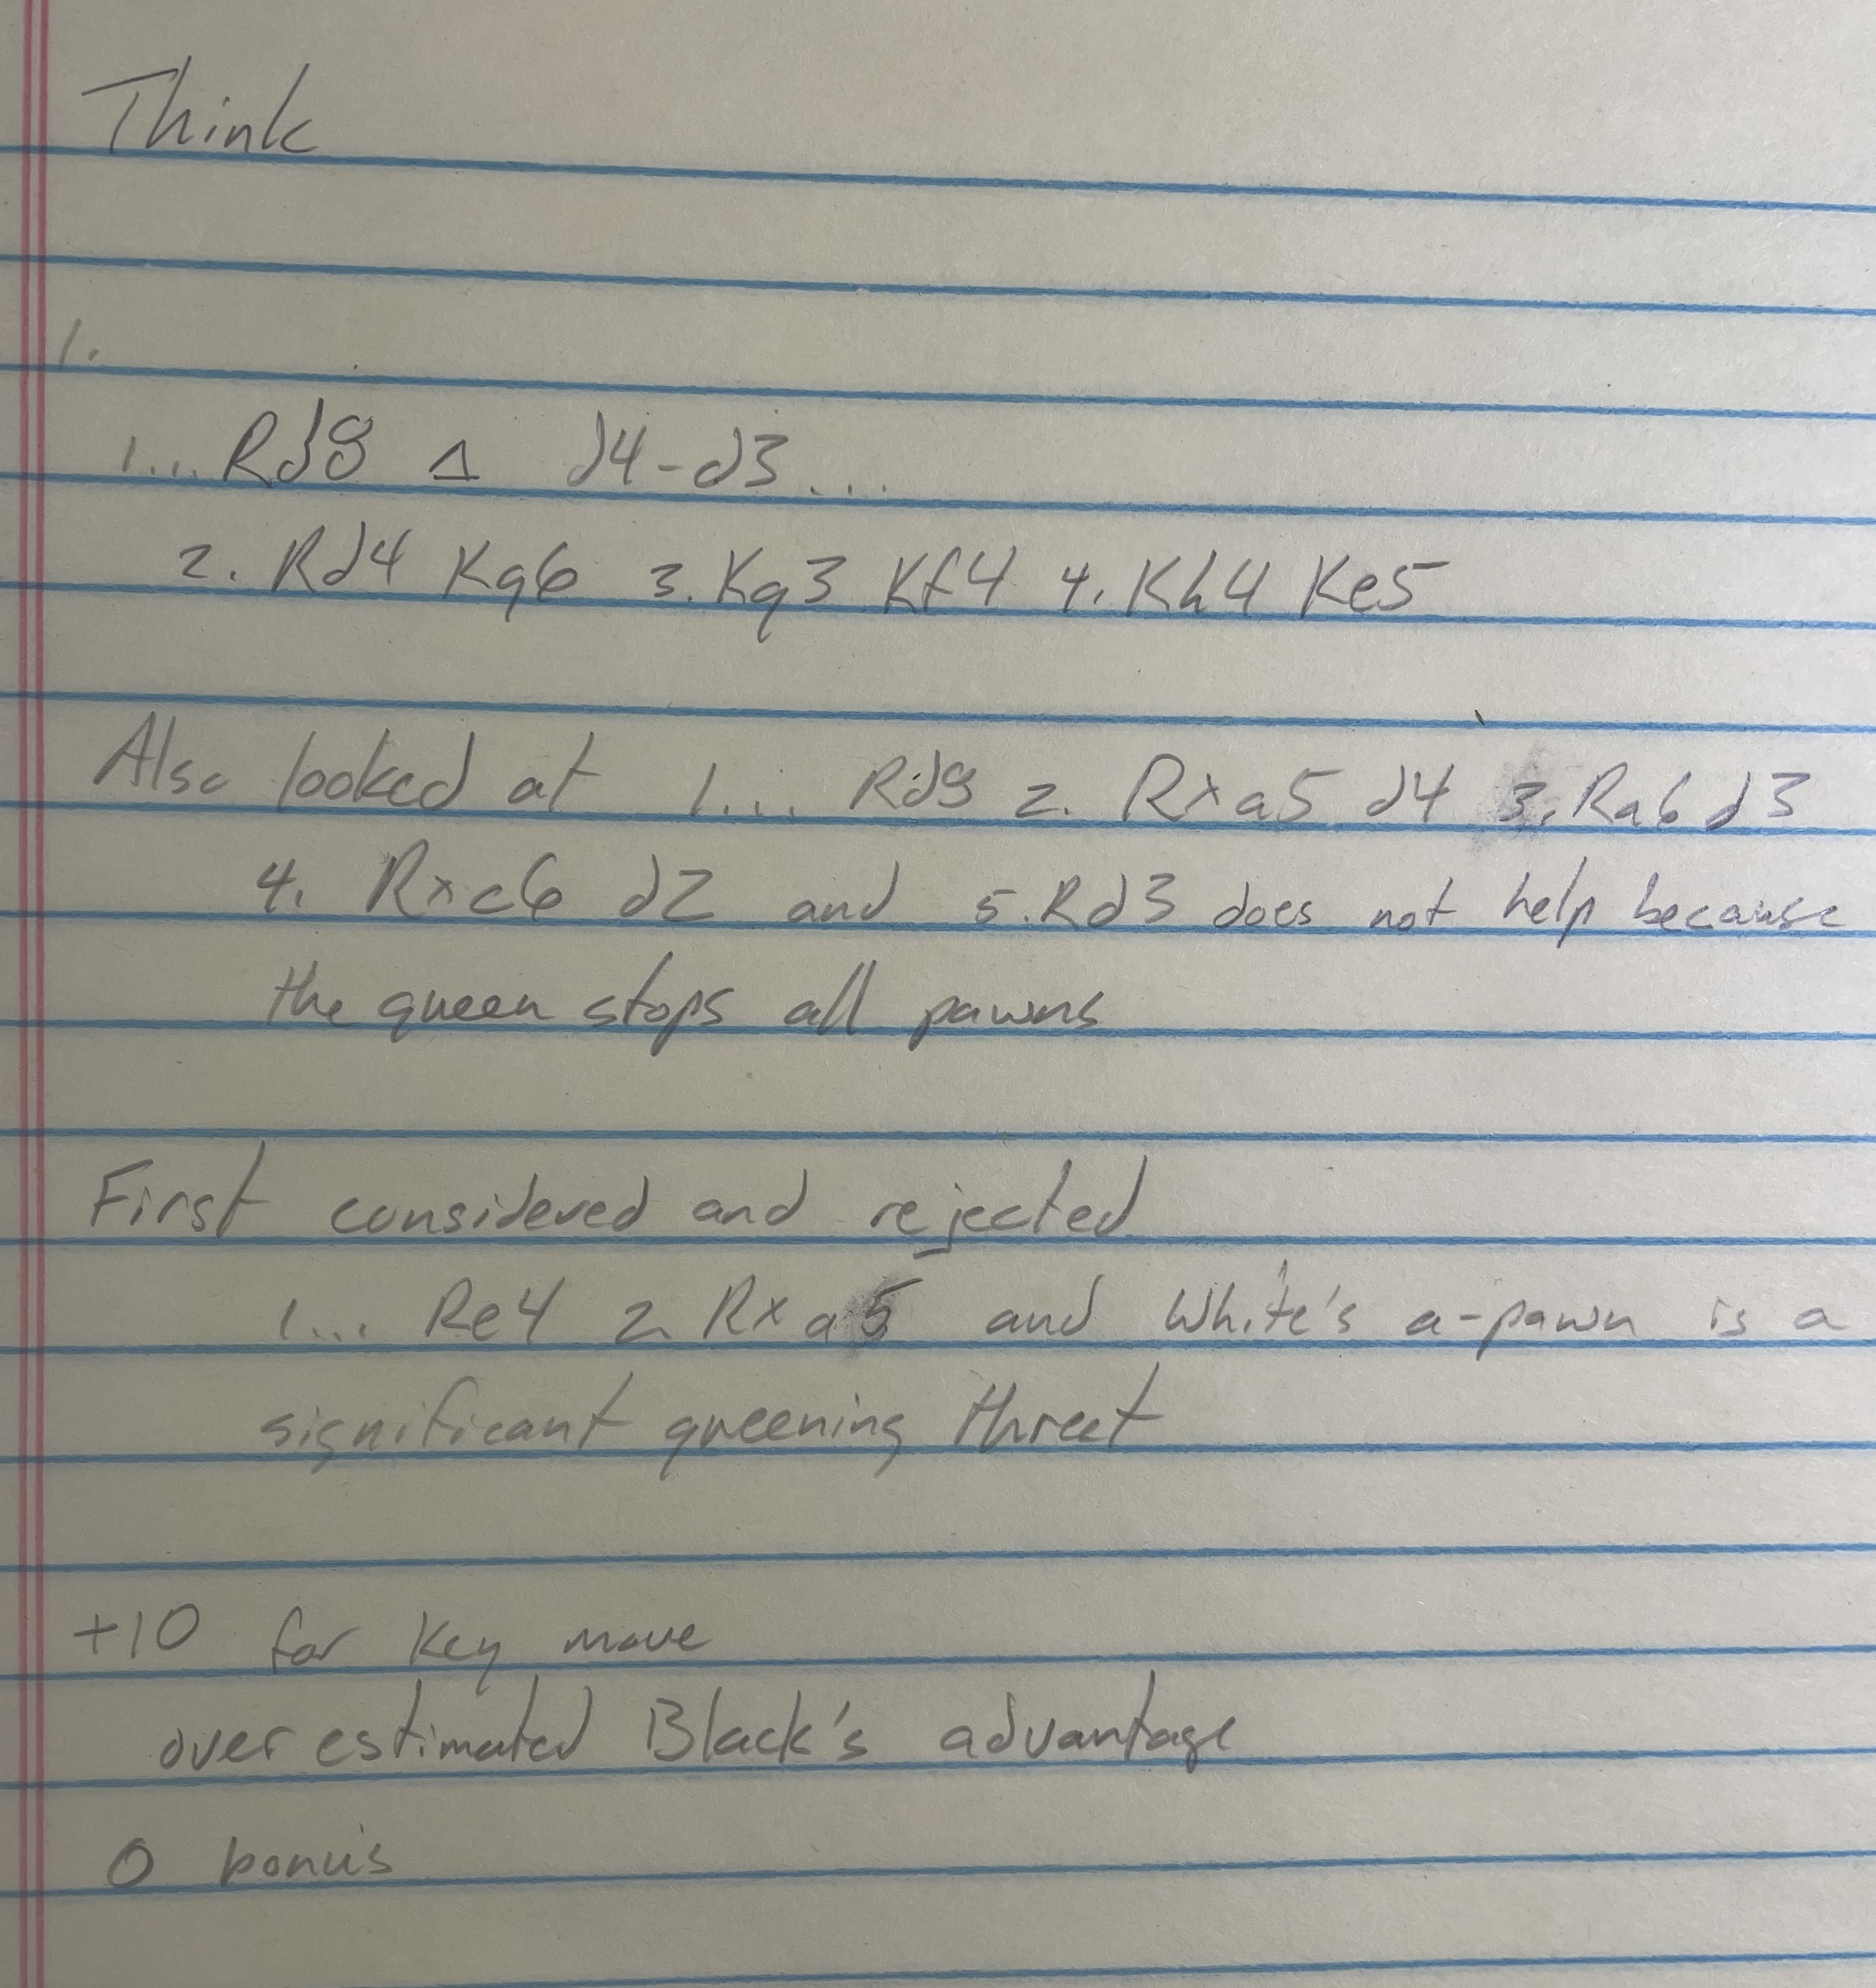 Think
1.
1... Rd8 Δ d4-d3...
2. Rd4 Kg6 3. Kg3 Kf4 4. Kh4 Ke5
Also looked at 1... Rd8 2. Rxa5 d4 3. Ra6 d3
4. Rxc6 d2 and 5. Rd3 does not help because
the queen stops all pawns
First considered and rejected
1... Re4 2. Rxa5 and White's a-pawn is a
significant queening threet
+10 for key move
over estimated Black's advantage
0 bonus